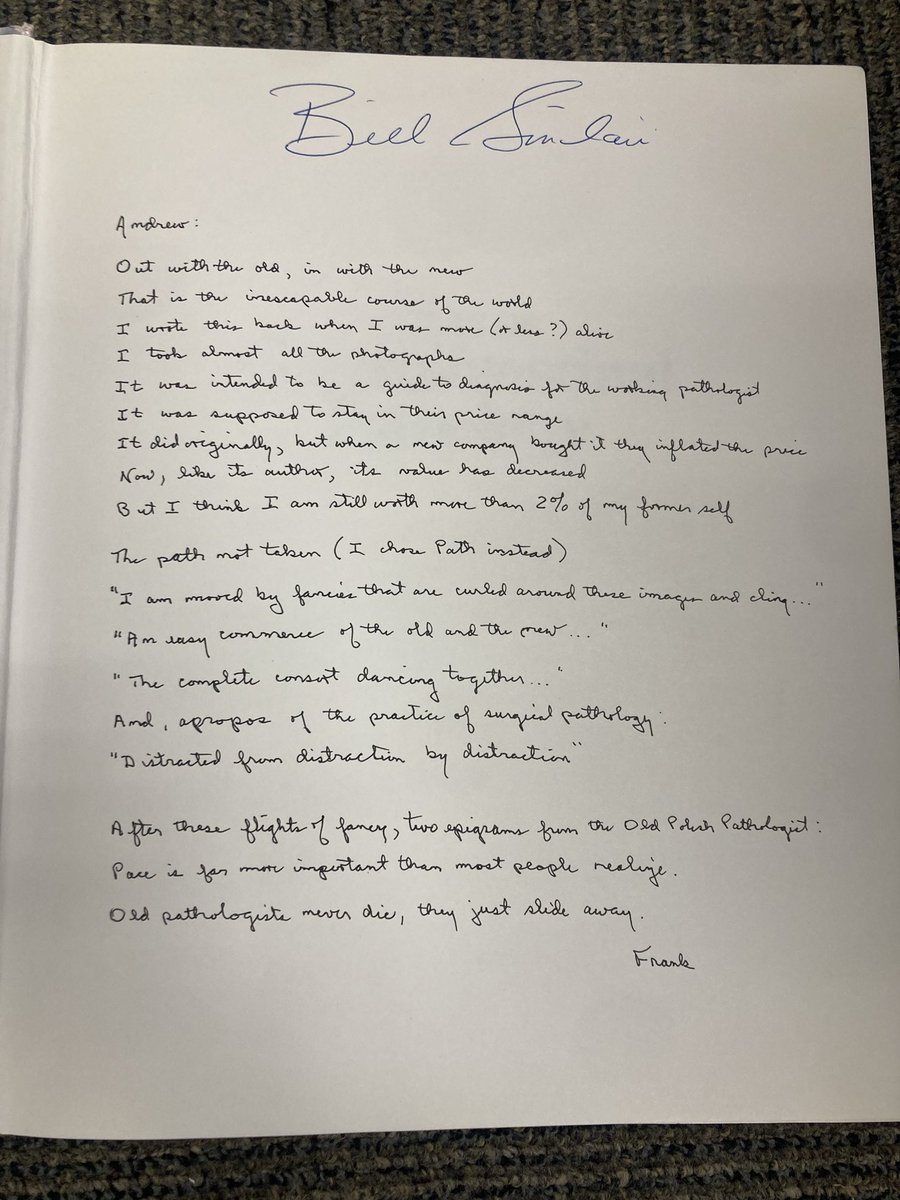 Bill Sinclair
Andrew:
Out with the old, in with the new
That is the inescapable course of the world
I wrote this back when I was more (or less?) alive
I took almost all the photographs
It was intended to be a guide to diagnosis for the working pathologist
It was supposed to stay in their price range
It did originally, but when a new company bought it they inflated the price
Now, like its author, its value has decreased
But I think I am still worth more than 2% of my former self
The path not taken (I chose Path instead)
"I am moved by fancies that are curled around these images and cling..."
"An easy commerce of the old and the new..."
"The complete consort dancing together..."
And, apropos of the practice of surgical pathology:
"Distracted from distraction by distraction"
After these flights of fancy, two epigrams from the Old Polish Pathologist:
Pace is far more important than most people realize.
Old pathologists never die, they just slide away.
Frank